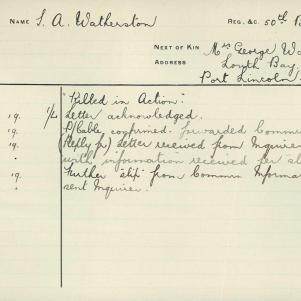 NAME S. A. Watherston REG. &C. 50th B
NEXT OF KIN Mrs George Wa
ADDRESS Louth Bay,
Port Lincoln
"Killed in Action."
19. 1/4 Letter acknowledged.
19. P/Cable, confirmed. Forwarded Commu
19. (Reply fr) Letter received from Inquirer
" with information received per sl
19. Further slip from Commun Informa
" sent Inquirer.